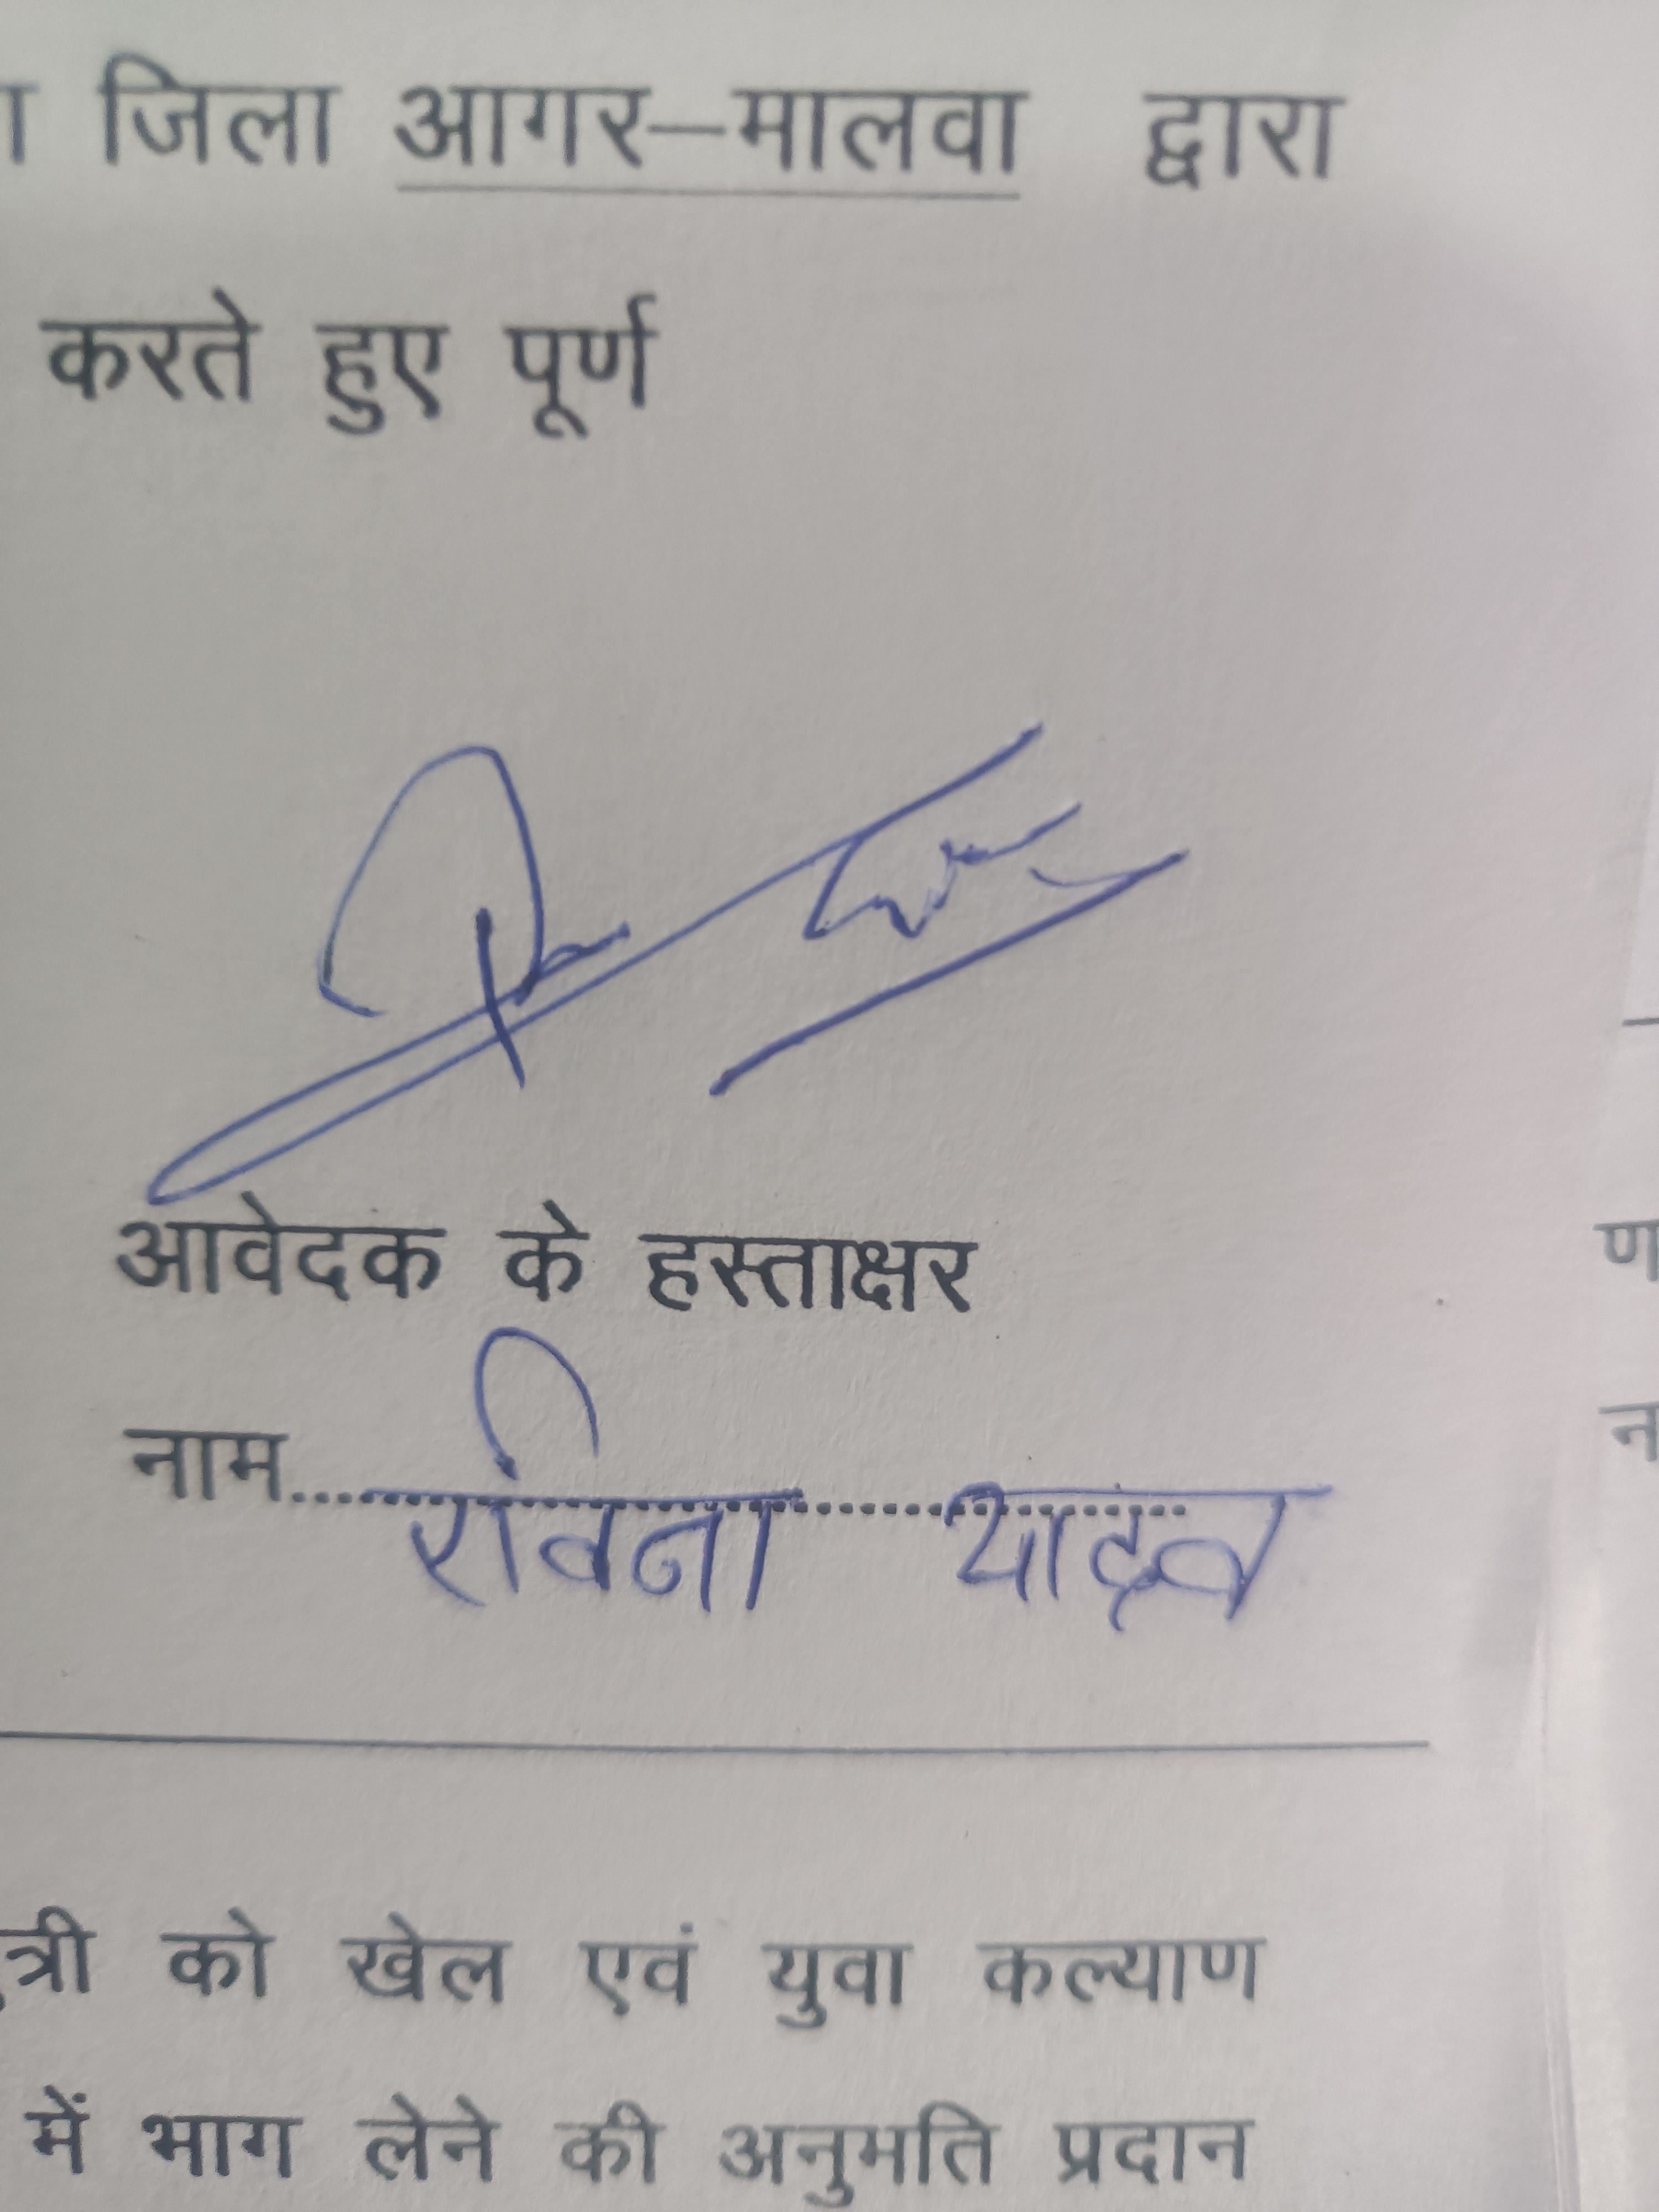 जिला आगर–मालवा द्वारा
करते हुए पूर्ण
आवेदक के हस्ताक्षर
नाम.................रविना यादव
को खेल एवं युवा कल्याण
में भाग लेने की अनुमति प्रदान